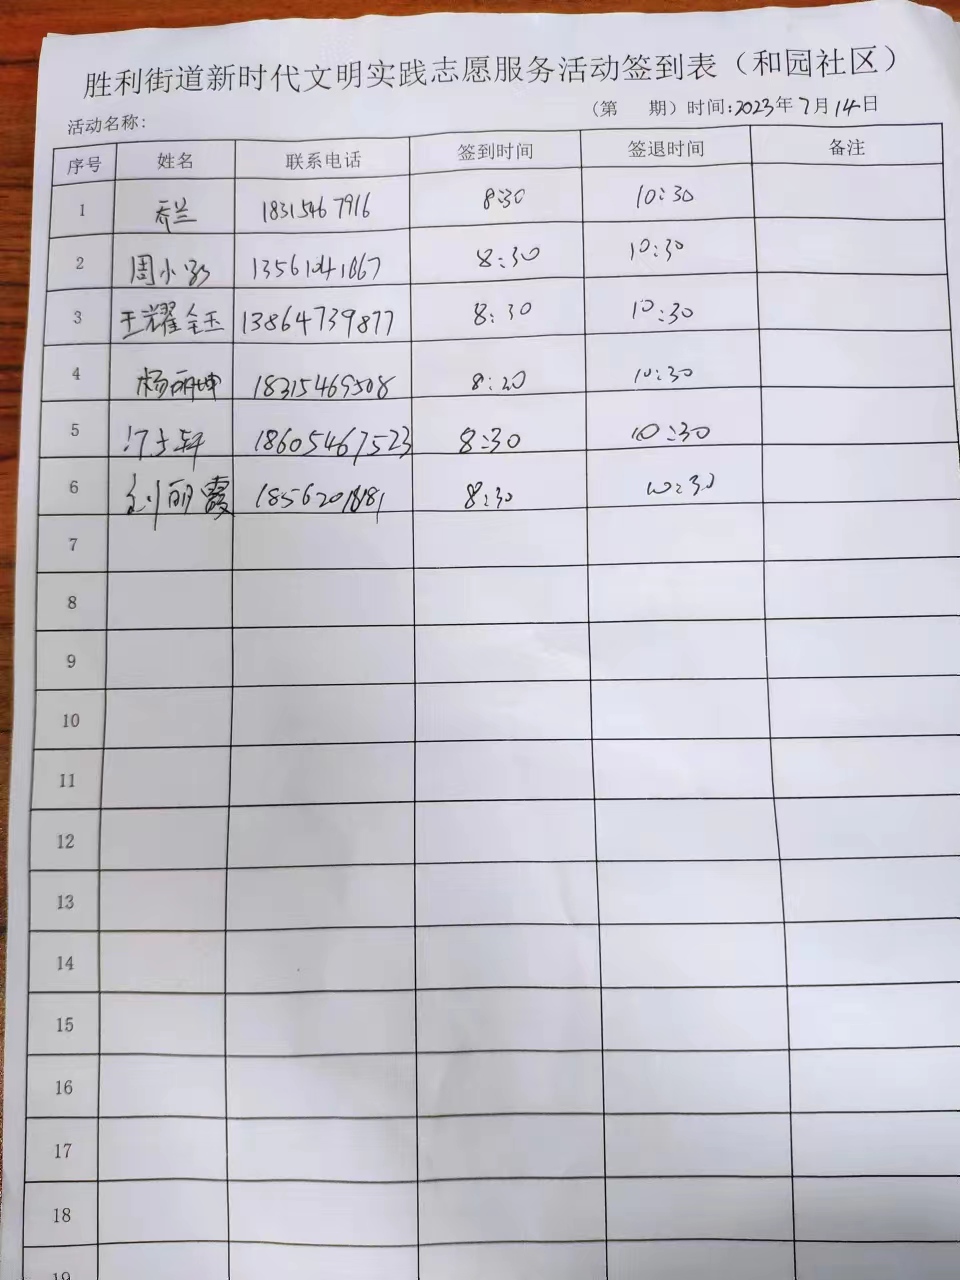 胜利街道新时代文明实践志愿服务活动签到表（和园社区）
（第 期）时间:2023年7月14日
活动名称:
序号 姓名 联系电话 签到时间 签退时间 备注
1 乔兰 18315467916 8:30 10:30
2 周小 8:30 10:30
3 王耀钰玉 13864739877 8:30 10:30
4 杨丽坤 18315469508 8:20 10:30
5 18605467523 8:30 10:30
6 刘丽霞 8:30 10:30
7
8
9
10
11
12
13
14
15
16
17
18
19